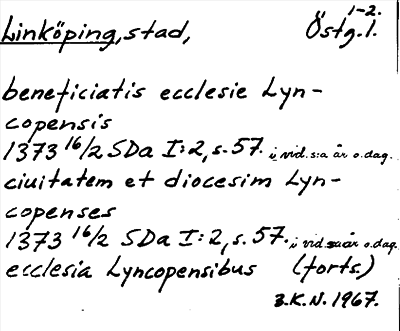 1-2.
Linköping, stad, Östg.l.
beneficiatis ecclesie Lyn-
copensis
1373 16/2 SDa I:2, s.57. i vid. s:a år o.dag.
ciuitatem et diocesim Lyn-
copenses
1373 16/2 SDa I:2, s.57. i vid. s:a år o.dag.
ecclesia Lyncopensibus (forts.)
B.K.N. 1967.